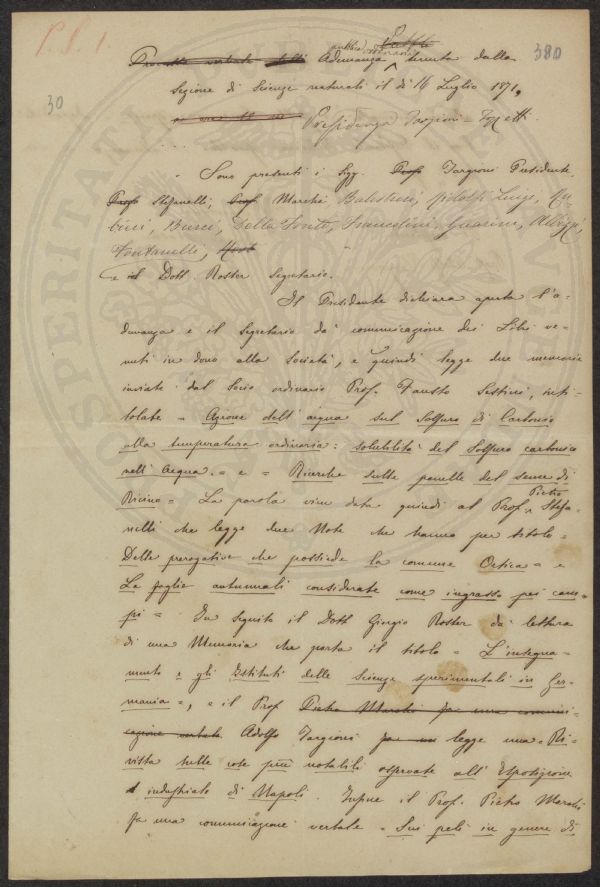 P.S. 1.
380
30
pubblica ordinaria
Processo verbale dell' Adunanza tenuta dalla
Sezione di Scienze naturali il dì 16 Luglio 1871.
Presidenza Targioni-Tozzetti.
Sono presenti i Sigg. Prof. Targioni Presidente,
Prof. Stefanelli, Prof. Marchi, Balestreri, Ridolfi Luigi, Cu-
bini, Burci, Della Fonte, Francolini, Guarini, Albizzi,
Fontanelli,
e il Dott. Roster Segretario.
Il Presidente dichiara aperta l'a-
dunanza e il Segretario dà comunicazione dei Libri ve-
nuti in dono alla Società, e quindi legge due memorie
inviate dal Socio ordinario Prof. Fausto Sestini, inti-
tolate = Azione dell'acqua sul Solfuro di Carbonio
alla temperatura ordinaria: solubilità del Solfuro carbonico
nell'Acqua. = e = Ricerche sulle panelle del seme di
Ricino = La parola vien data quindi al Prof. Pietro Stefa-
nelli che legge due Note che hanno per titolo =
Delle prerogative che possiede la comune Ortica = e
Le foglie autunnali considerate come ingrasso pei cam-
pi = In seguito il Dott. Giorgio Roster dà lettura
di una Memoria che porta il titolo = L'insegna-
mento e gli Istituti delle Scienze sperimentali in Ger-
mania =, e il Prof. Pietro Marchi fa una comuni-
cazione verbale Adolfo Targioni fa una legge una = Ri-
vista sulle cose più notabili osservate all'Esposizione
industriale di Napoli. Infine il Prof. Pietro Marchi
fa una comunicazione verbale = Sui peli in genere di